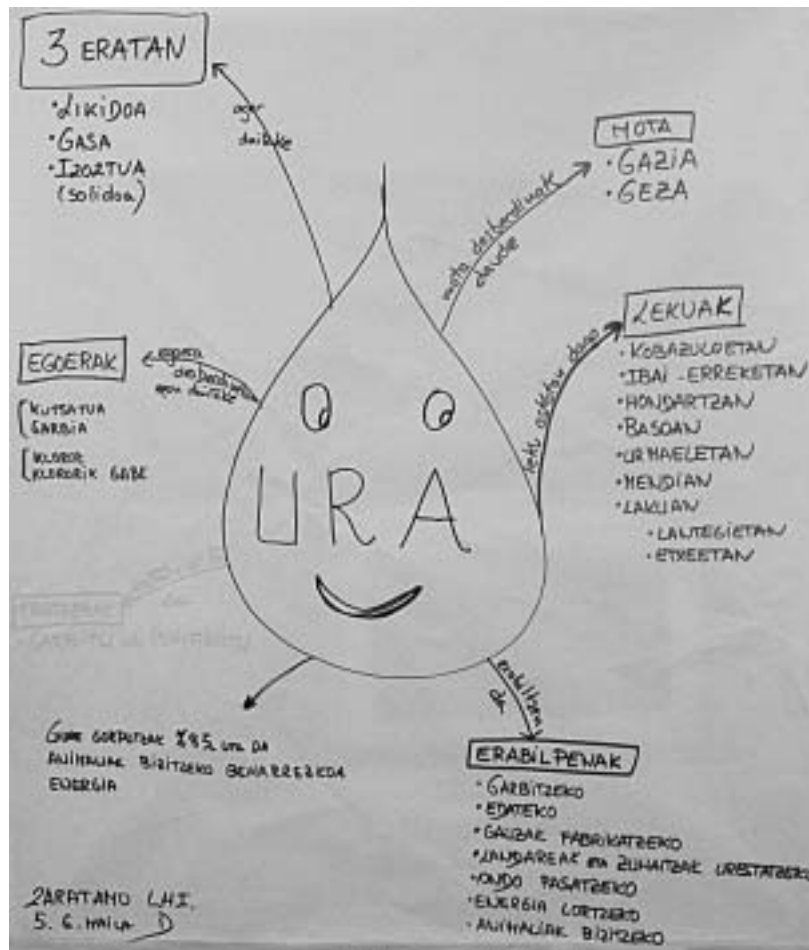 3 ERATAN
ager
daiteke
• LIKIDOA
• GASA
• IZOZTUA
(Solidoa)
MOTA
• GAZIA
• GEZA
mota desberdinak
daude
LEKUAK
leku askotan dago
• KOBAZULOETAN
• IBAI-ERREKETAN
• HONDARTZAN
• BASOAN
• URMAELETAN
• MENDIAN
• LAKUAN
• LANTEGIETAN
• ETXEETAN
EGOERAK
egoera
desberdinetan
egon daiteke
KUTSATUA
GARBIA
KLOROZ
KLORORIK GABE
URA
GURE GORPUTZAK %85 URA DA
ANIMALIAK BIZITZEKO BEHARREZKOA
ENERGIA
erabiltzen
da
ERABILPENAK
• GARBITZEKO
• EDATEKO
• GAUZAK FABRIKATZEKO
• LANDAREAK eta ZUHAITZAK UREZTATZEKO
• ONDO PASATZEKO
• ENERGIA LORTZEKO
• ANIMALIAK BIZITZEKO
ZARATAMO LHI.
5. 6. MAILA D